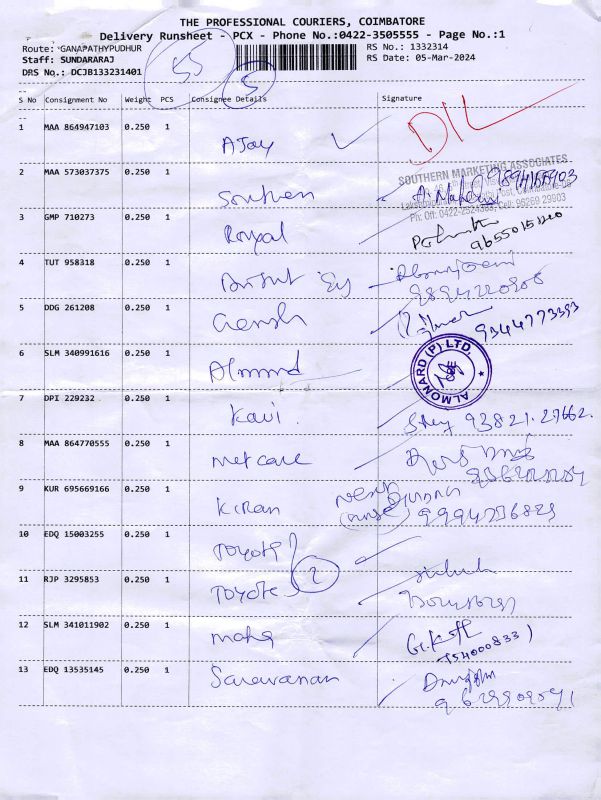 THE PROFESSIONAL COURIERS, COIMBATORE
Delivery Runsheet - PCX - Phone No.:0422-3505555 - Page No.:1
Route: GANAPATHYPUDHUR
RS No.: 1332314
Staff: SUNDARARAJ
RS Date: 05-Mar-2024
DRS No.: DCJB133231401
55
5
S No Consignment No Weight PCS Consignee Details Signature
1 MAA 864947103 0.250 1 AJay D/L
SOUTHERN MARKETING ASSOCIATES
2 MAA 573037375 0.250 1 Southern
Ph: Off: 0422-2524363, Cell: 96269 29903
3 GMP 710273 0.250 1 Royal
4 TUT 958318 0.250 1
5 DDG 261208 0.250 1 Gensh 9344773393
6 SLM 340991616 0.250 1 Almond ALMONARD (P) LTD.
7 DPI 229232 0.250 1 Kavi. 93821.27662.
8 MAA 864770555 0.250 1 metcare
9 KUR 695669166 0.250 1 Kiran
10 EDQ 15003255 0.250 1 Toyote
2
11 RJP 3295853 0.250 1 Toyote
12 SLM 341011902 0.250 1
13 EDQ 13535145 0.250 1 Saravanan